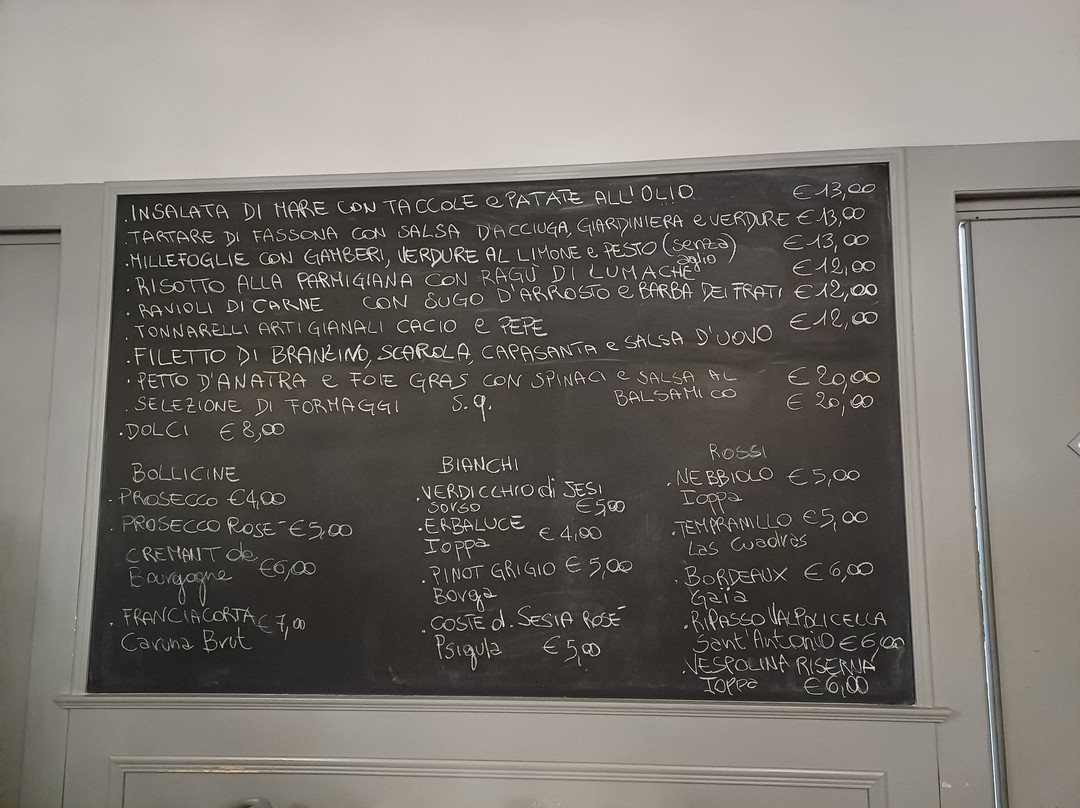 .INSALATA DI MARE CON TACCOLE e PATATE ALL'OLIO € 13,00
.TARTARE DI FASSONA CON SALSA D'ACCIUGA, GIARDINIERA e VERDURE € 13,00
.MILLEFOGLIE CON GAMBERI, VERDURE AL LIMONE e PESTO (senza aglio) € 13,00
. RISOTTO ALLA PARMIGIANA CON RAGÙ DI LUMACHE € 12,00
. RAVIOLI DI CARNE CON SUGO D'ARROSTO e BARBA DEI FRATI € 12,00
. TONNARELLI ARTIGIANALI CACIO e PEPE € 12,00
.FILETTO DI BRANZINO, SCAROLA, CAPASANTA e SALSA D'UOVO € 20,00
. PETTO D'ANATRA e FOIE GRAS CON SPINACI e SALSA AL
BALSAMICO € 20,00
. SELEZIONE DI FORMAGGI S.q.
.DOLCI € 8,00
BOLLICINE
. PROSECCO € 4,00
. PROSECCO ROSE- € 5,00
CREMANT de
Bourgogne € 6,00
. FRANCIACORTA € 7,00
Caruna Brut
BIANCHI
.VERDICCHIO di JESI
Sorso € 5,00
.ERBALUCE € 4,00
Ioppa
. PINOT GRIGIO € 5,00
Borga
. COSTE d. SESIA ROSE-
Psigula € 5,00
ROSSI
. NEBBIOLO € 5,00
Ioppa
.TEMPRANILLO € 5,00
Las Cuadras
. BORDEAUX € 6,00
Gaïa
.RIPASSO VALPOLICELLA
Sant'Antonio € 6,00
.VESPOLINA RISERVA
Ioppa € 6,00